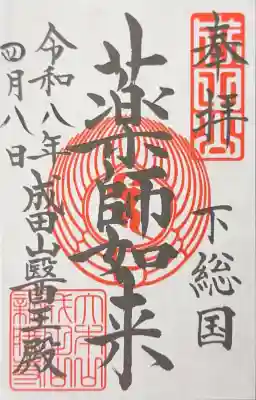 奉拝
下総国
薬師如来
成田山醫王殿
令和八年
四月八日